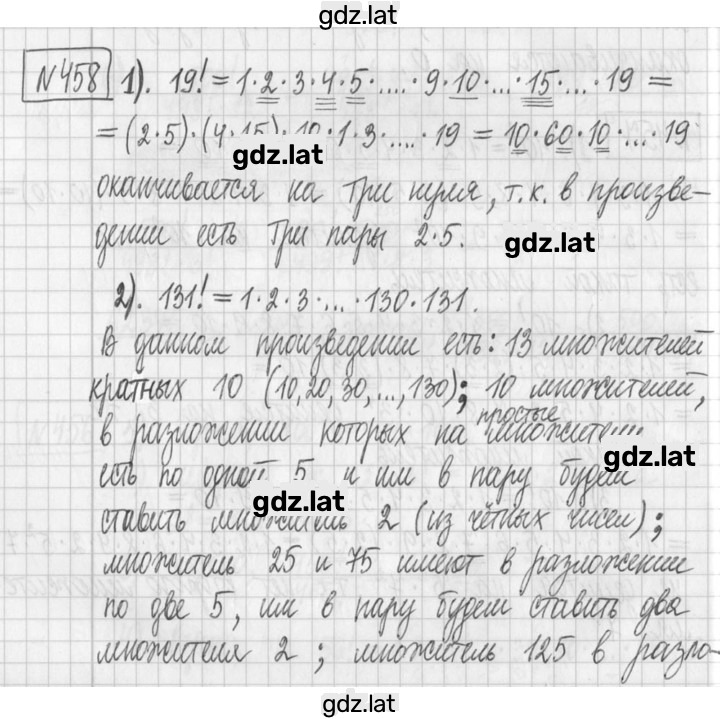 gdz.lat
№458 1). 19! = 1·2·3·4·5·....·9·10·...·15·...·19 =
= (2·5)·(4·15)·10·1·3·....·19 = 10·60·10·...·19
gdz.lat
оканчивается на три нуля, т.к. в произве-
дении есть три пары 2·5.
gdz.lat
2). 131! = 1·2·3·...·130·131.
В данном произведении есть: 13 множителей
кратных 10 (10, 20, 30, ..., 130); 10 множителей,
простые
в разложении которых на
gdz.lat
есть по одной 5 и им в пару будем
gdz.lat
ставить множитель 2 (из чётных чисел);
множитель 25 и 75 имеют в разложении
по две 5, им в пару будем ставить два
множителя 2; множитель 125 в разло-
gdz.lat